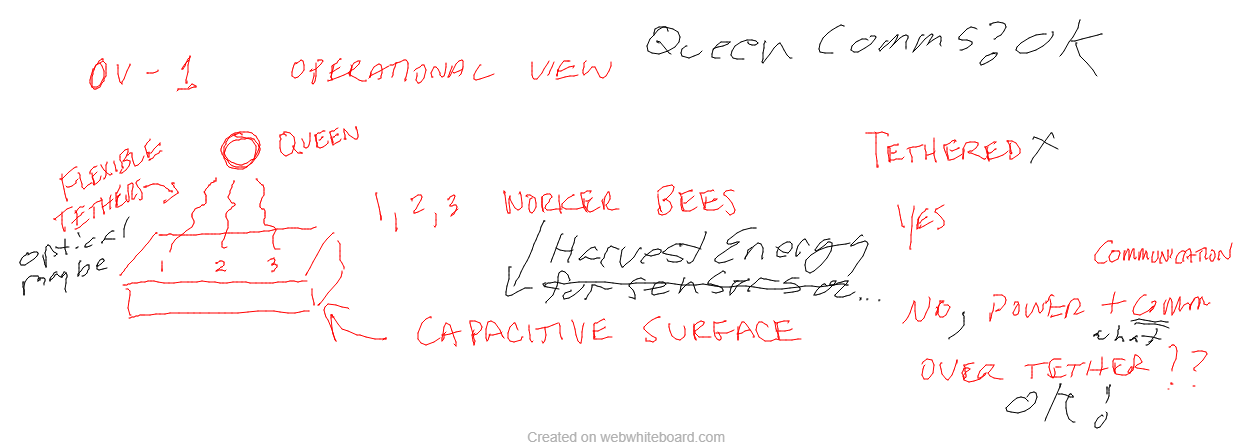 Queen Comms? OK
OV-1 OPERATIONAL VIEW
QUEEN
FLEXIBLE
TETHERS
optical
maybe
1 2 3
1, 2, 3 WORKER BEES
Harvest Energy
for sensors or...
CAPACITIVE SURFACE
TETHERED X
YES
COMMUNICATION
NO, POWER + COMM
what
OVER TETHER ??
OK!
Created on webwhiteboard.com